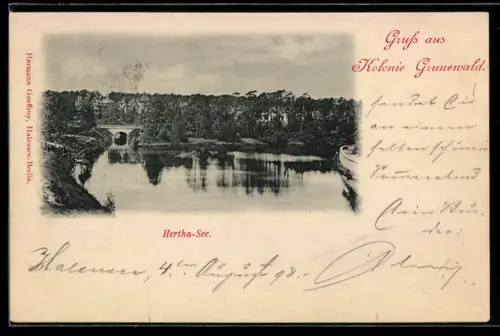 Gruß aus
Kolonie Grunewald.
Hermann Goeffroy, Halensee-Berlin.
sendet Dir
an einem
selten schönen
Dein Bru-
der:
Hertha-See.
Halensee, 4ten August 98.